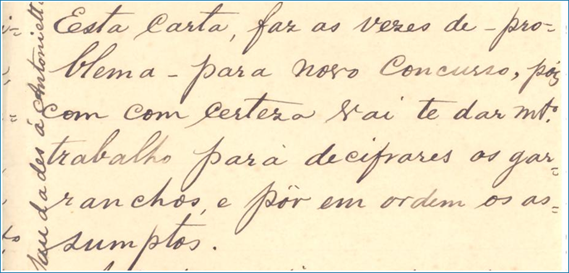 Esta carta, faz as vezes de - pro-
blema - para novo concurso, pós
com com certeza vai te dar mt.º
trabalho para decifrares os gar-
ranchos, e pôr em ordem os as-
sumptos.
saudades á Antonietta